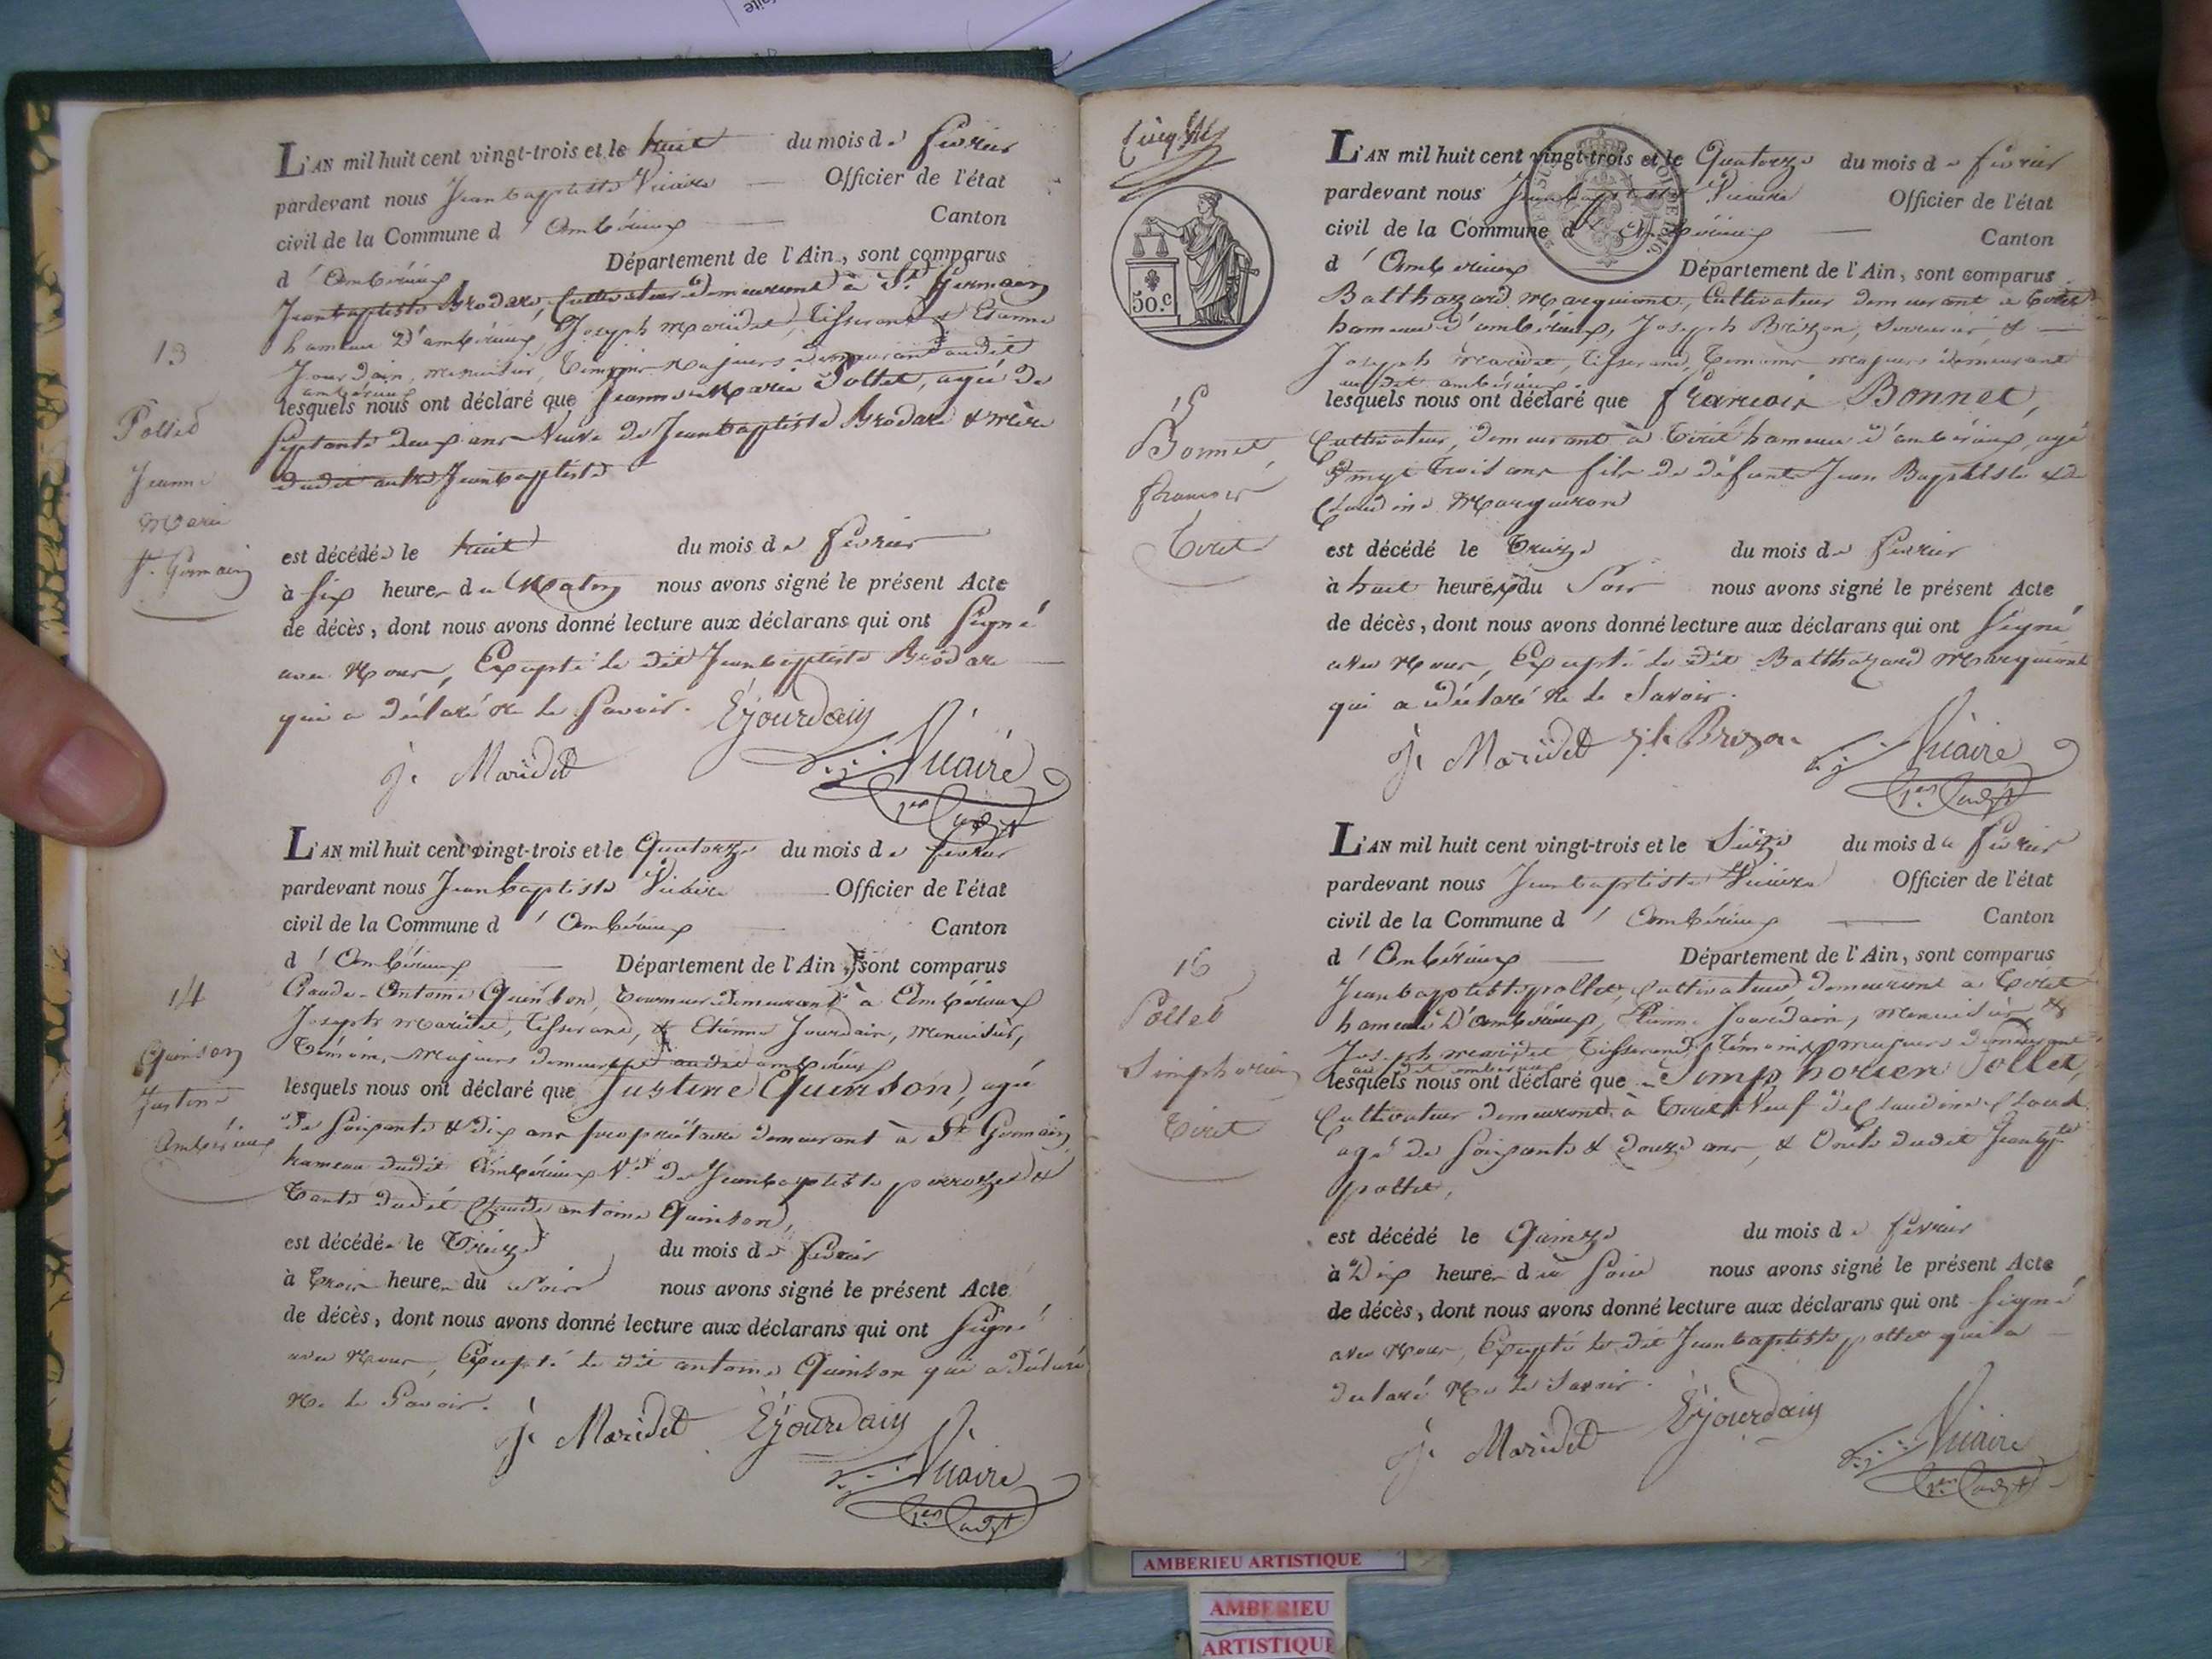 L'AN mil huit cent vingt-trois et le huit du mois de février
pardevant nous Jean baptiste Vicaire Officier de l'état
civil de la Commune d'Ambérieux Canton
d'Ambérieux Département de l'Ain, sont comparus
Jean baptiste Brodard, Cultivateur demeurant à St. Germain
hameau d'ambérieux, Joseph Maridet, Tisserand & Etienne
Jourdain, menuisier, témoins majeurs demeurant audit
ambérieux
lesquels nous ont déclaré que Jeanne Marie Pollet, agée de
Septante deux ans Veuve de Jean baptiste Brodard & mère
dudit autre Jean baptiste
13
Pollet
Jeanne
Marie
St. Germain
est décédée le huit du mois de février
à six heures du Matin nous avons signé le présent Acte
de décès, dont nous avons donné lecture aux déclarans qui ont Signé
avec Nous, Excepté le dit Jean baptiste Brodard
qui a déclaré ne le Savoir. E Jourdain
J. Maridet Vicaire
1er adjt
L'AN mil huit cent vingt-trois et le Quatorze du mois de février
pardevant nous Jean baptiste Vicaire Officier de l'état
civil de la Commune d'Ambérieux Canton
d'Ambérieux Département de l'Ain, sont comparus
Claude-Antoine Quinson, demeurant à Ambérieux
Joseph Maridet, Tisserand, & Etienne Jourdain, Menuisier,
Témoins Majeurs demeurant audit ambérieux
lesquels nous ont déclaré que Justine Quinson, agée
de Soixante & dix ans propriétaire demeurant à St Germain
hameau dudit Ambérieux Ve. de Jean baptiste &
Tante dudit Claude antoine Quinson,
14
Quinson
Justine
Ambérieux
est décédée le Treize du mois de février
à trois heures du Soir nous avons signé le présent Acte
de décès, dont nous avons donné lecture aux déclarans qui ont Signé
avec Nous, Excepté le dit antoine Quinson qui a déclaré
Ne le Savoir.
J. Maridet E Jourdain
Vicaire
1er adjt
50.c
L'AN mil huit cent vingt-trois et le Quatorze du mois de février
pardevant nous Jean baptiste Vicaire Officier de l'état
civil de la Commune d'Ambérieux Canton
d'Ambérieux Département de l'Ain, sont comparus
Balthazard Marguiront, Cultivateur demeurant à Tiret
hameau d'ambérieux, Joseph Brizon, Serrurier, &
Joseph Maridet, Tisserand, témoins majeurs demeurant
au dit ambérieux
lesquels nous ont déclaré que francois Bonnet,
Cultivateur, demeurant à Tiret hameau d'ambérieux, agé
vingt trois ans fils de défunt Jean Baptiste & de
Claudine Marguiron
15
Bonnet
francois
Tiret
est décédé le Treize du mois de février
à huit heures du Soir nous avons signé le présent Acte
de décès, dont nous avons donné lecture aux déclarans qui ont Signé
avec Nous, Excepté le dit Balthazard Marguiront
qui a déclaré Ne le Savoir.
J. Maridet Brizon Vicaire
1er adjt
L'AN mil huit cent vingt-trois et le Seize du mois de février
pardevant nous Jean baptiste Vicaire Officier de l'état
civil de la Commune d'Ambérieux Canton
d'Ambérieux Département de l'Ain, sont comparus
Jean baptiste pollet, Cultivateur demeurant à Tiret
hameau d'Ambérieux, Etienne Jourdain, Menuisier &
Joseph Maridet, Tisserand, Témoins majeurs demeurant
au dit ambérieux
lesquels nous ont déclaré que Simphorien Pollet,
Cultivateur demeurant à Tiret Veuf de Claudine
agé de Soixante & douze ans, & Oncle dudit Jean bte
pollet,
16
Pollet
Simphorien
Tiret
est décédé le Quinze du mois de février
à Dix heures du Soir nous avons signé le présent Acte
de décès, dont nous avons donné lecture aux déclarans qui ont Signé
avec Nous, Excepté le dit Jean baptiste pollet qui a
déclaré Ne le Savoir.
J. Maridet E Jourdain Vicaire
1er adjt
AMBERIEU ARTISTIQUE
AMBERIEU
ARTISTIQUE